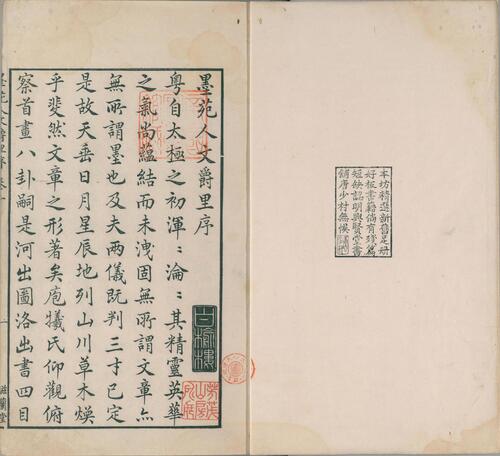 本坊精選新舊足冊
好板書籍倘有殘篇
短缺認明興賢堂書
鋪唐少村無悞
墨苑人文爵里序
粵自太極之初渾〻淪〻其精靈英華
之氣尚蘊結而未洩固無所謂文章亦
無所謂墨也及夫兩儀既判三才已定
是故天垂日月星辰地列山川草木煥
乎斐然文章之形著矣庖犧氏仰觀俯
察首畫八卦嗣是河出圖洛出書四目
人文爵里
一
滋蘭堂